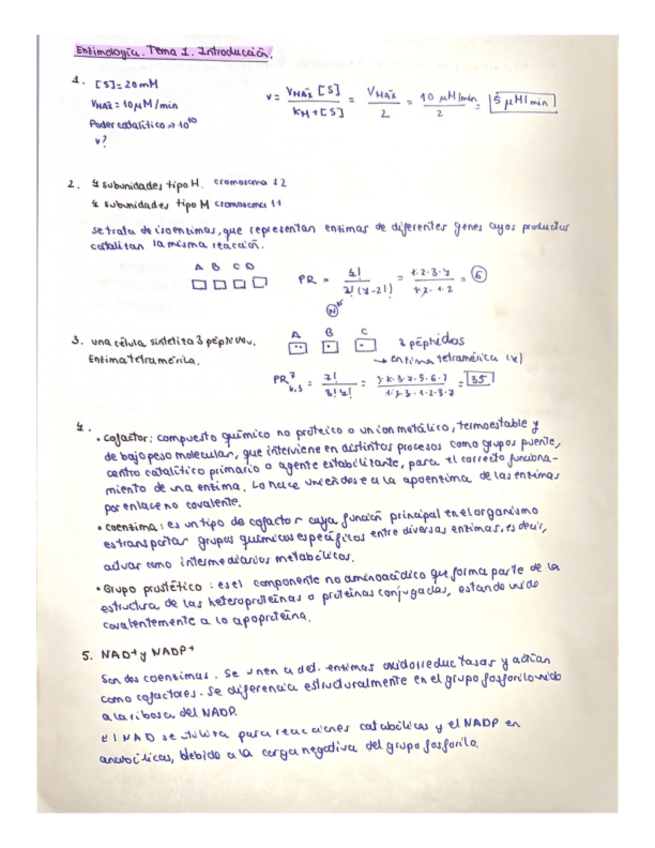 Enzimología. Tema 1. Introducción.
1. [S]=20mM
VMÁX = 10μM/min
Poder catalítico → 10¹⁰
v?
v = VMÁX [S] / KM+[S] = VMÁX / 2 = 10 μM/min / 2 = 5 μM/min
2. 4 subunidades tipo H. cromosoma 12
4 subunidades tipo M cromosoma 11
Se trata de isoenzimas, que representan enzimas de diferentes genes cuyos productos
catalizan la misma reacción.
A B C D
PR = 4! / 2!(4-2!) = 1·2·3·4 / 1·2·1·2 = 6
3. una célula sintetiza 3 péptidos.
Enzima tetramérica.
A B C
3 péptidos
→ enzima tetramérica (4)
= 7! / 3!4! = = 35
4.
• Cofactor: compuesto químico no proteico o un ion metálico, termoestable y
de bajo peso molecular, que interviene en distintos procesos como grupos puente,
centro catalítico primario o agente estabilizante, para el correcto funciona-
miento de una enzima. Lo hace uniéndose a la apoenzima de las enzimas
por enlace no covalente.
• Coenzima: es un tipo de cofactor cuya función principal en el organismo
es transportar grupos químicos específicos entre diversas enzimas, es decir,
actuar como intermediarios metabólicos.
• Grupo prostético: es el componente no aminoacídico que forma parte de la
estructura de las heteroproteínas o proteínas conjugadas, estando unido
covalentemente a la apoproteína.
5. NAD+ y NADP+
Son dos coenzimas. Se unen a det. enzimas oxidorreductasas y actúan
como cofactores. Se diferencia estructuralmente en el grupo fosforilo unido
a la ribosa del NADP.
El NAD se utiliza para reacciones catabólicas y el NADP en
anabólicas, debido a la carga negativa del grupo fosforilo.